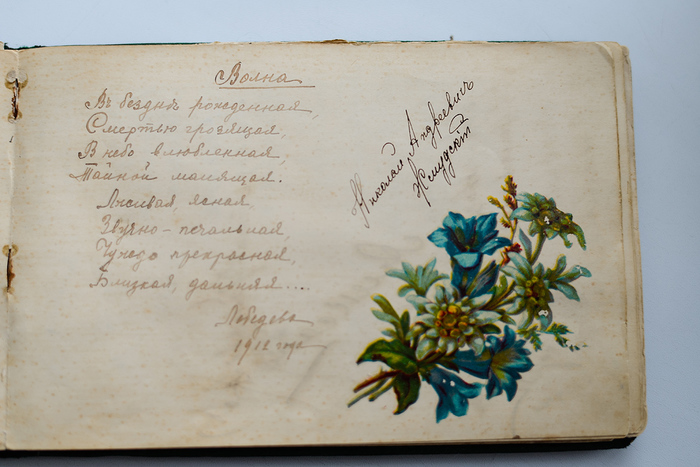 Волна
Въ безднѣ рожденная,
Смертью грозящая,
В небо влюбленная,
Тайной манящая.
Лживая, ясная,
Звучно-печальная,
Чуждо прекрасная,
Близкая, дальняя....
Лебедева
1912 года
Николай Андреевичъ
Жмудскт